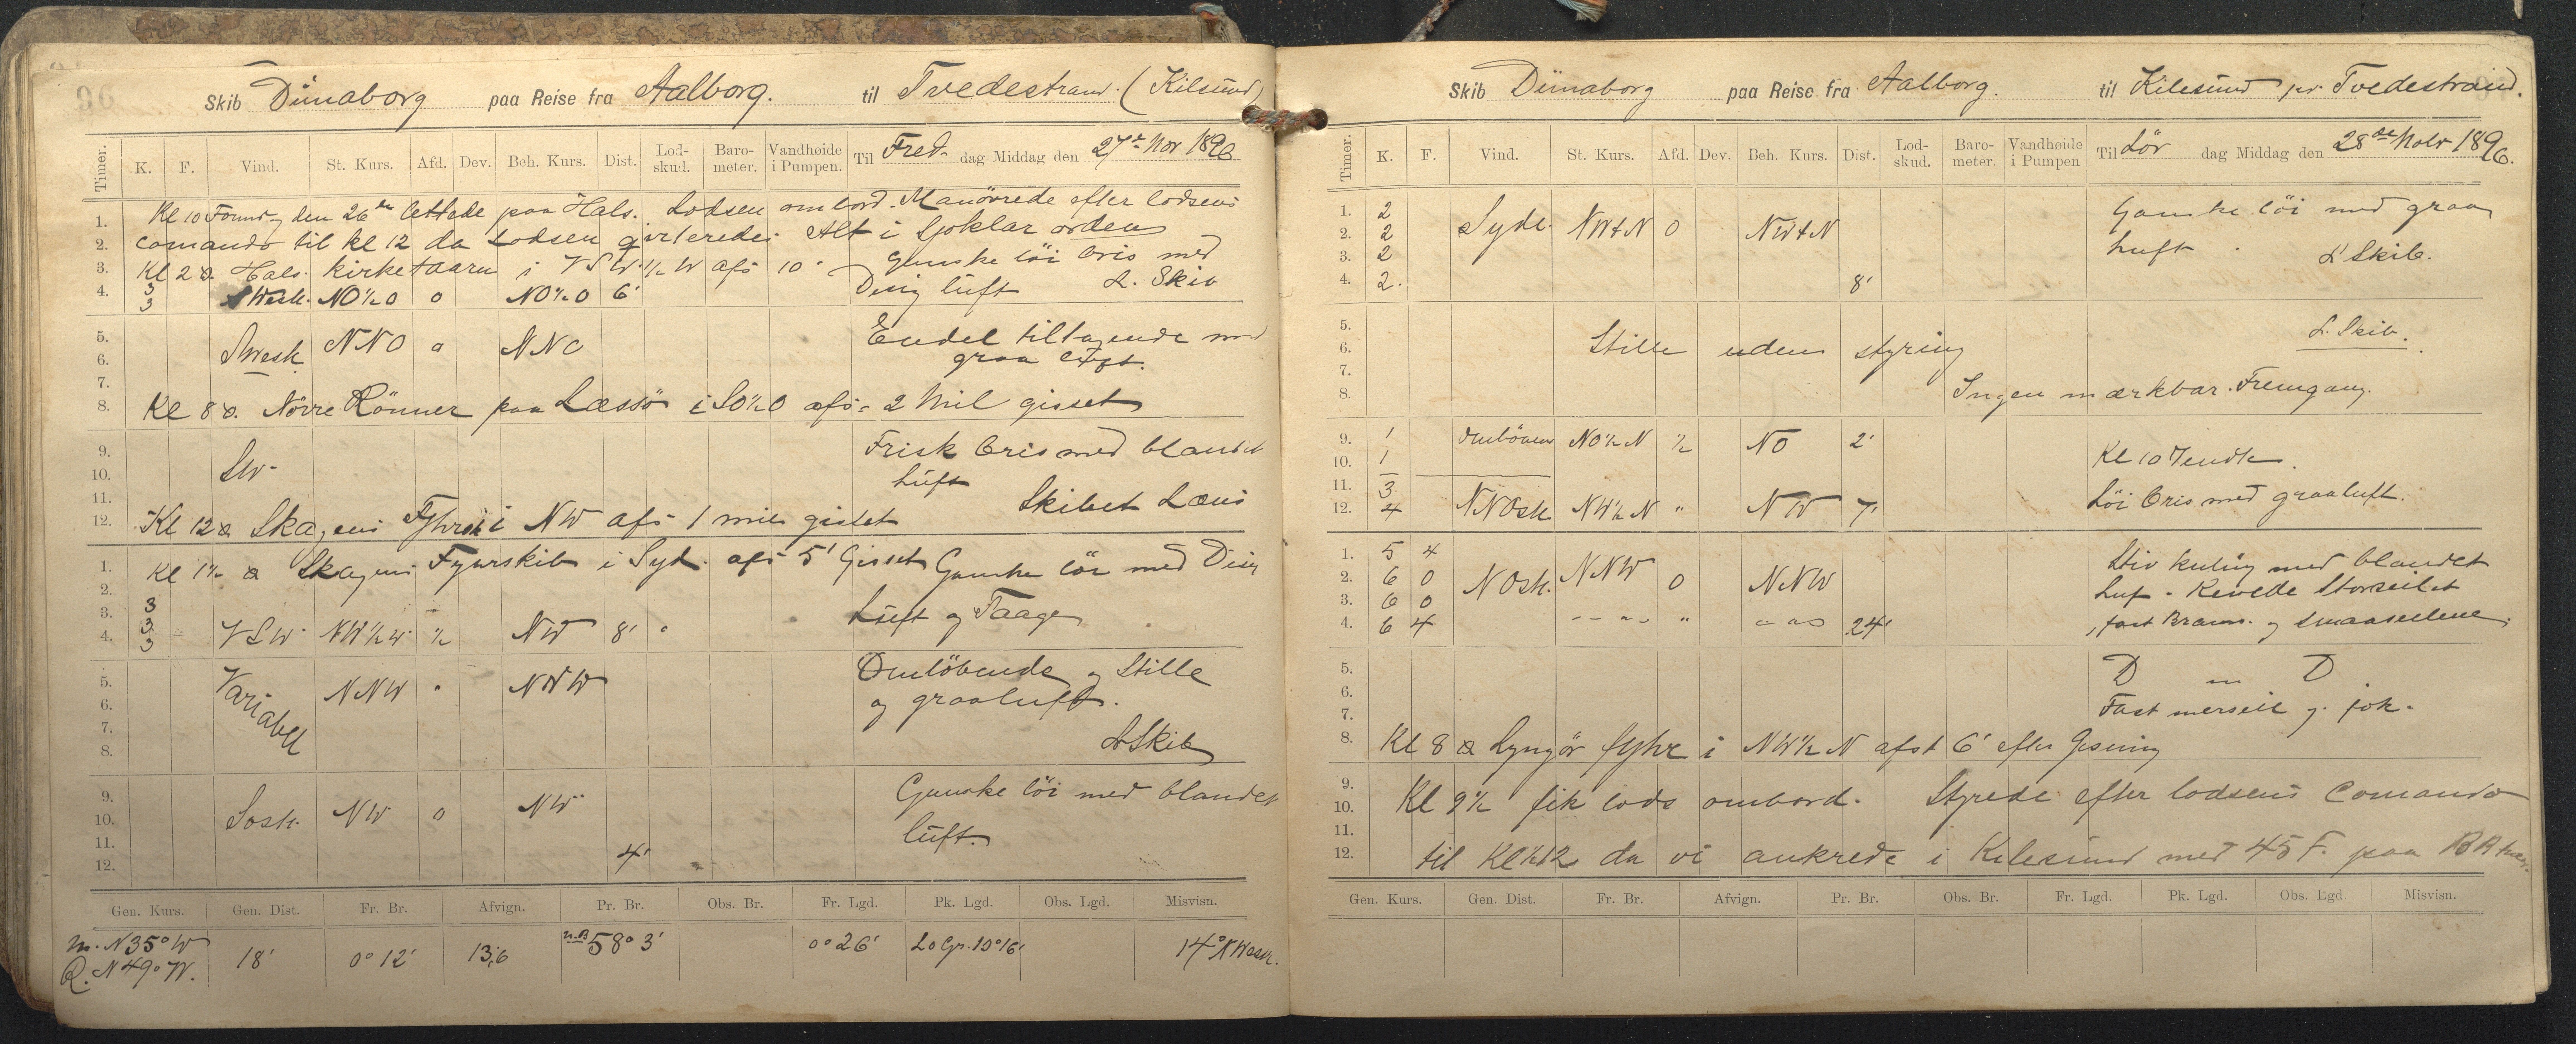 96
Skib Dünaborg paa Reise fra Aalborg. til Tvedestrand. (Kilsund)
Timer. K. F. Vind. St. Kurs. Afd. Dev. Beh. Kurs. Dist. Lod-skud. Baro-meter. Vandhøide i Pumpen. Til Fred- dag Middag den 27de Nov 1896
1. Kl 10 Formdg den 26de lettede paa Hals. Lodsen ombord. Manövrede efter lodsens
2. Comando til kl 12 da Lodsen qvitteredes Alt i Sjöklar orden
3. Kl 2 a. Hals kirketaarn i VSW ½ W afs 10' Ganske löi bris med
4. 3 3 SWestl. NO½O 0 NO½O 6' Disig lüft L. Skib
5. Endel tiltagende med
6. SWestl NNO 0 NNO graa lüft.
7.
8. Kl 8 a. Nörre Rönner paa Læssö i SO½O afs = 2 Mil gisset
9. Frisk bris med blandet
10. SW- lüft
11. Skibet Læns
12. Kl 12 a Skagens Fyhrskib i NW afs 1 mils gisset
1. Kl 1½ a Skagens Fyurskib i Syd. afs 5' Gisset Ganske löi med Disig
2.
3. 3 Luft og Taage
4. 3 3 VSW NW½W ½ NW 8'
5. Omlöbende og Stille
6. Variabel NNW " NNW og graaluft.
7.
8. L Skib
9. Ganske löi med blandet
10. Sostl. NW 0 NW
11. luft.
12. 4'
Gen. Kurs. Gen. Dist. Fr. Br. Afvign. Pr. Br. Obs. Br. Fr. Lgd. Pk. Lgd. Obs. Lgd. Misvisn.
m. N35°W
R. N49°W. 18' 0°12' 13,6 n.B 58°3' 0°26' L o Gr. 10°16' 14° NWestl.
Skib Dünaborg paa Reise fra Aalborg. til Kilesund pr. Tvedestrand.
Timer. K. F. Vind. St. Kurs. Afd. Dev. Beh. Kurs. Dist. Lod-skud. Baro-meter. Vandhøide i Pumpen Til Lör dag Middag den 28de Nobr 1896.
1. 2 Ganske löi med graa
2. 2 Sydl. NWtN 0 NWtN
3. 2 luft. L Skib.
4. 2. 8'
5. L. Skib.
6. Stille uden styring
7.
8. Ingen mærkbar Fremgang.
9. 1 omlöbene NO½N ½ NO 2'
10. 1 Kl 10 Vendte.
11. 3
12. 4 NNOstl. NW½N " NW 7' Löi bris med graaluft.
1. 5 4 Stiv kuling med blandet
2. 6 0 NOstl. NNW 0 NNW
3. 6 0 luf. Revede Storseilet
4. 6 4 " " " 24' fast Bram- og smaaseilene.
5. D " D
6.
7. Fast merseil og fok.
8. Kl 8 a Lyngör fyhr i NW½N afst 6' efter Gisning
9.
10. Kl 9½ fik lods ombord. Styrede efter lodsens Comando
11.
12. til Kl ½12 da vi ankrede i Kilesund med 45 F. paa BB
Gen. Kurs. Gen. Dist. Fr. Br. Afvign. Pr. Br. Obs. Br. Fr. Lgd. Pk. Lgd. Obs. Lgd Misvisn.